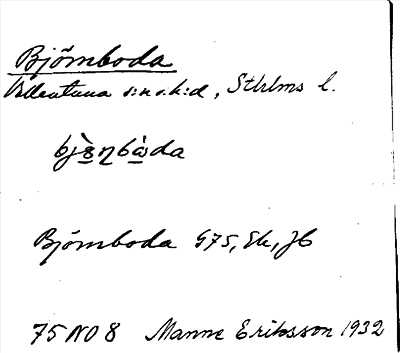 Björnboda
Vallentuna s:n o. h:d, Sthlms l.
Björnboda G75, Ek, JC
75 NO 8 Manne Eriksson 1932